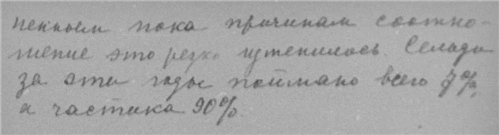 ненным пока причинам соотно-
шение это резко изменилось. Сельди
за эти годы поймано всего 7%,
а частика 90%.